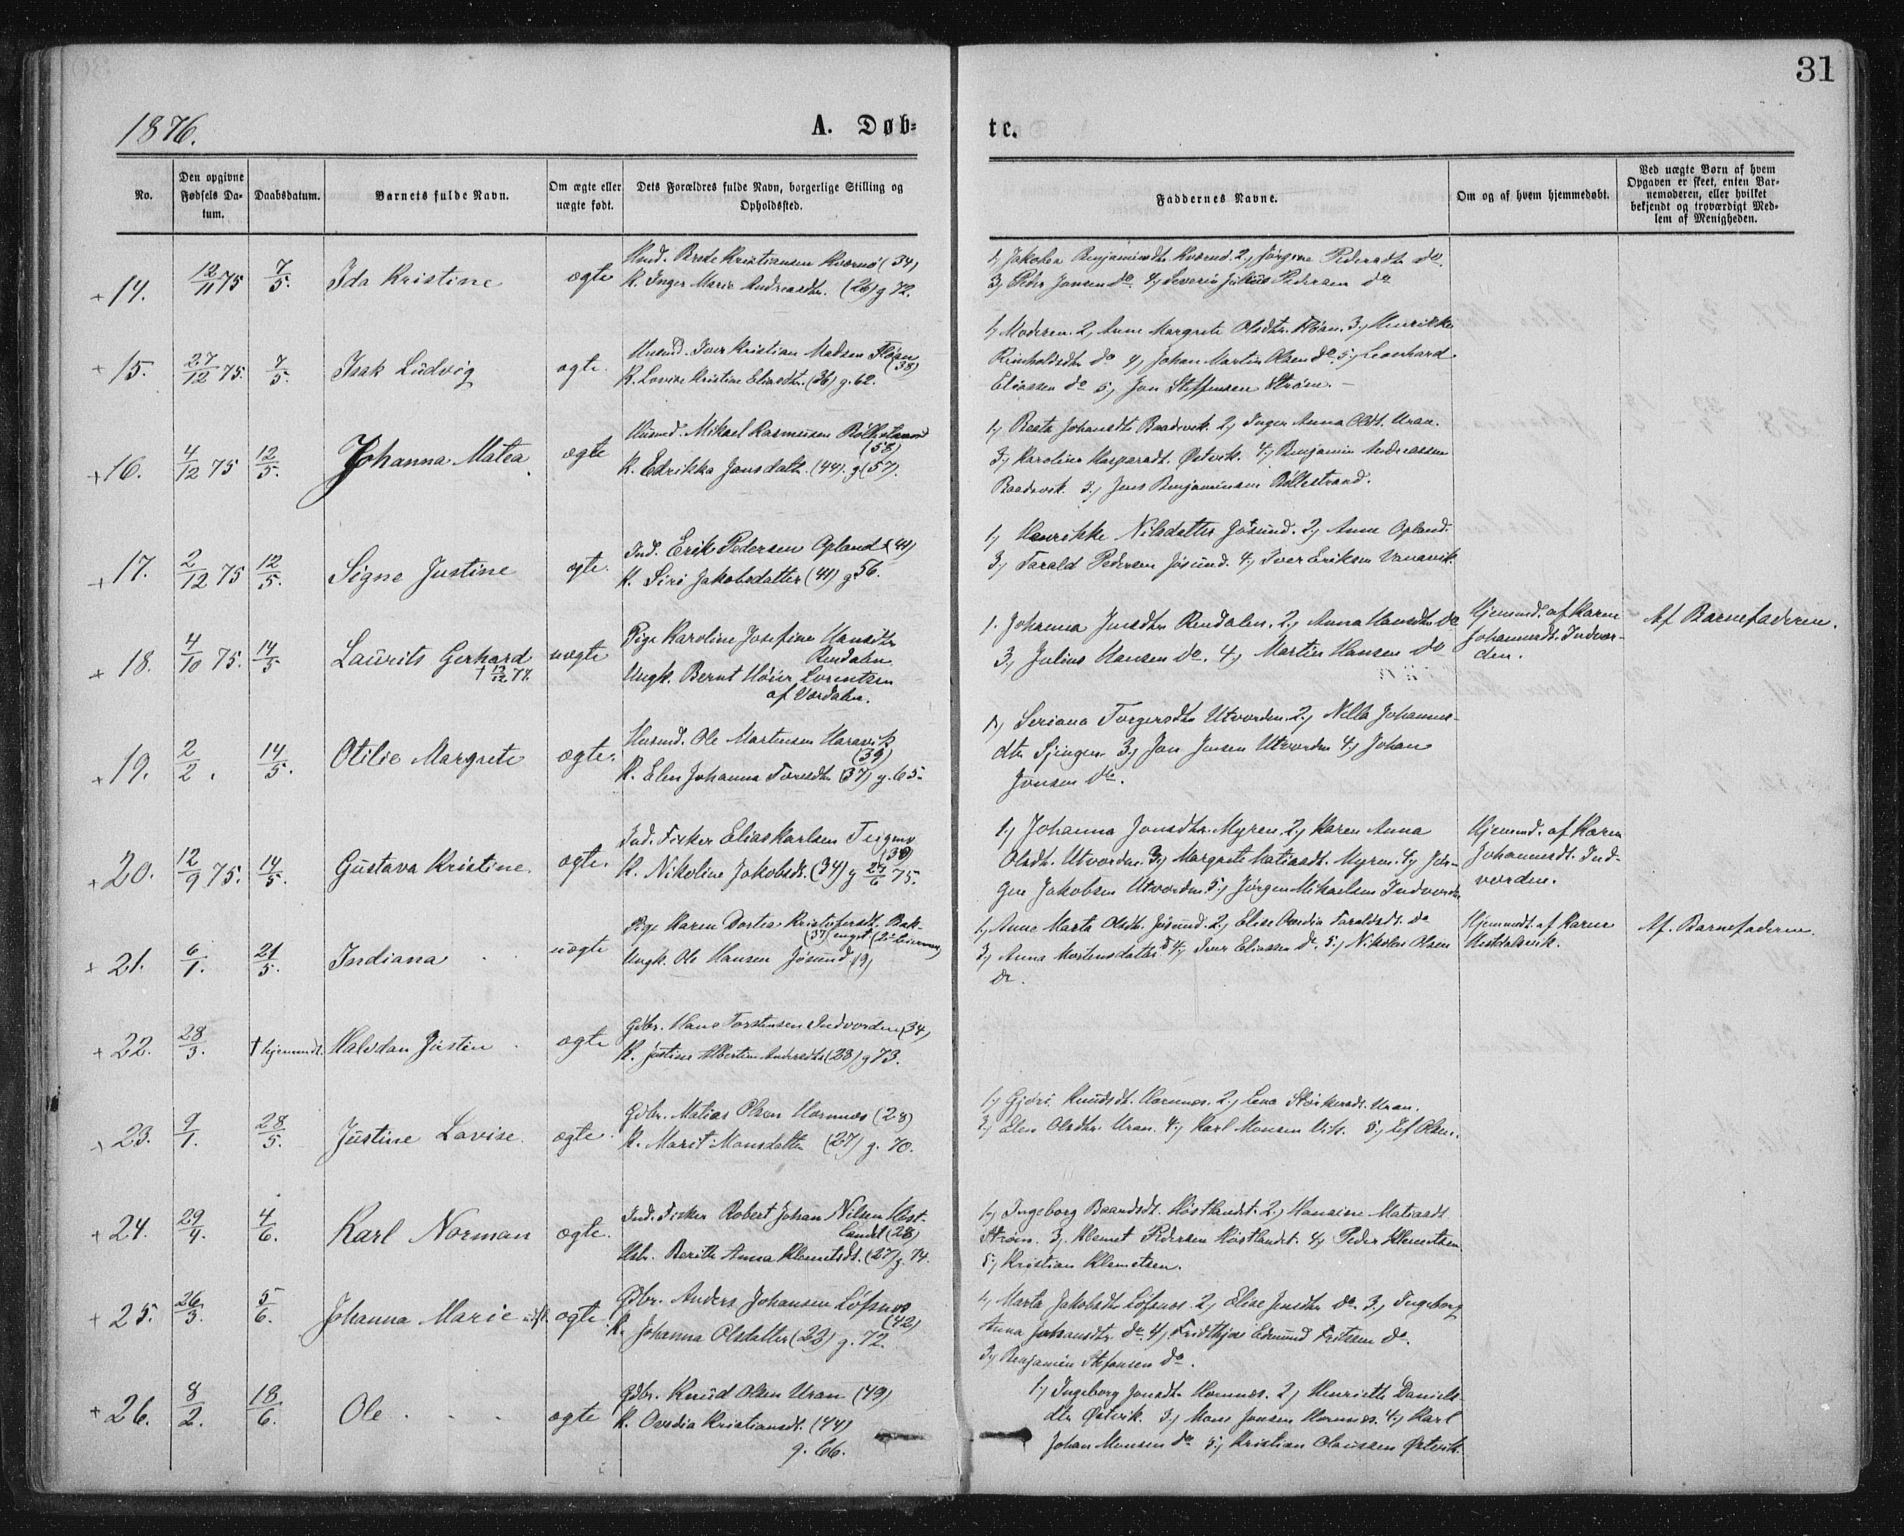 31
1876.
A. Døb-
te.
No.
Den opgivne Fødsels Datum.
Daabsdatum.
Barnets fulde Navn.
Om ægte eller uægte født.
Dets Forældres fulde Navn, borgerlige Stilling og Opholdssted.
Faddernes Navne.
Om og af hvem hjemmedøbt.
Ved uægte Børn af hvem Opgaven er skeet, enten Barnemoderen, eller hvilket bekjendt og troværdigt Medlem af Menigheden.
+ 14. 12/11 75 7/5. Ida Kristine ægte
Kristiansen (34)
K. Inger Marie Andreasdtr. (26) g 72.
1, Jakobea Benjaminsdtr. 2, Jørgine Pedersdtr do.
3, Peter Jonsen do. 4, Severin Julius Pedersen do
+ 15. 27/12 75. 7/5. Isak Ludvig ægte.
Husmd. Iver Kristian Madsen Fløan (38)
K. Lovise Kristine Eliasdtr. (36) g. 62.
1, Moderen. 2, Anne Margrete Olsdtr. Fløan. 3, Henrikke
Reinholdsdtr do 4, Johan Martin Olsen do. 5, Leonhard
Eliassen do 5, Jon Steffensen Strøm. –
+ 16. 4/12 75 12/5. Johanna Matea ægte
Husmd. Mikael Rasmusen Bølhstrand (58)
K. Edrikka Jonsdattr. (44). g (57).
1, Beate Johansdtr Baadsvik. 2, Inger Anna Olsdt. Uran.
3, Karoline Kasparsdt. Østvik. 4, Benjamin Andreassen
Baadsvik. 3, Jens Benjaminsen Bøllestrand.
+ 17. 2/12 75 12/5. Signe Justine ægte.
Ind. Erik Pedersen Opland (41)
K. Siri Jakobsdatter (41) g 56.
1, Henrikke Nilsdatter Jøsund. 2, Anne Opland.
3, Tarald Pedersen Jøsund. 4, Iver Eriksen Vanavik.
+ 18. 4/10 75. 14/5 Laurits Gerhard uægte
† 12/12 77.
Pige Karoline Josefine Hansdtr
Rendalen
Ungk. Bernt Høier Lorentsen
af Værdalen.
1. Johanna Jensdtr Rendalen. 2, Anna Hansdtr do
3, Julius Hansen do. 4, Martin Hansen do
Hjemmd. af Karen
Johannesdt. Indvor-
den.
Af Barnefaderen.
+ 19. 2/2. 14/5. Otilie Margrete ægte.
Husmd. Ole Martinsen Haravik (39)
K. Elen Johanna Toresdtr (37) g. 65.
1, Seriana Torgersdtr Utvorden. 2, Nella Johannes-
dtr Sjingen 3, Jon Jensen Utvorden 4, Johan
Jonsen do.
+ 20. 12/9 75. 14/5. Gustava Kristine ægte.
Ind. Fisker Elias Karlsen Teigmo (38)
K. Nikoline Jakobsdt. (34) g 24/6 75.
1, Johanna Jonsdtr. Myren. 2, Karen Anna
Olsdt. Utvorden. 3, Margrete Matiasdt. Myren. 4, Jør-
gen Jakobsen Utvorden. 5, Jørgen Mikaelsen Indvorden
Hjemmd. af Karen
Johannesdt. Ind-
vorden.
+ 21. 6/1. 21/5. Indiana uægte
Pige Karen Dortea Kristofersdt. Bak-
(37) enget
Ungk. Ole Hansen Jøsund (19)
1, Anne Marta Olsdtr. Jøsund. 2, Elise Ovedia Taraldsdt. do
3, Anna Mortensdatter do 4, Iver Eliassen do. 5, Nikolai Olsen
do.
Hjemmdt. af Karen
Hestdalsvik.
Af Barnefaderen.
+ 22. 28/3. † hjemmdt. Halvdan Justin ægte
Gdbr. Hans Torstensen Indvorden (34)
K. Justine Albertine Andersdtr (28) g 73.
+ 23. 9/1. 28/5. Justine Lovise. ægte.
Gdbr. Matias Olsen Homnes (28)
K. Marit Monsdatter (27) g. 70.
1, Gjøri Knudsdt. Homnes. 2, Lena Størkersdt. Uran.
3, Elen Olsdtr. Uran. 4, Karl Monsen Vik. 5, Elef Olsen.
+ 24. 29/4. 4/6. Karl Norman ægte.
Ind. Fisker Robert Johan Nilsen Høst-
landet (28)
Hbr. Berith Anna Klemetsdt. (27) g. 74.
1, Ingeborg Baardsdt. Høstlandet. 2, Hansine Matiasdt
Strøm. 3, Klemet Pedersen Høstlandet. 4, Peder Klemetsen
5, Kristian Klemetsen.
+ 25. 26/3. 5/6. Johanna Marie ægte.
Gdbr. Anders Johansen Løfsnes (42)
K. Johanna Olsdatter (23) g. 72.
1, Marta Jakobsdtr Løfsnes. 2, Elise Jensdtr do. 3, Ingeborg
Anna Johansdtr. do. 4, Fridthjov Edmund Fritsen do.
5, Benjamin Stefansen do.
+ 26. 8/2. 18/6. Ole ægte
Gdbr. Knud Olsen Uran (49)
K. Ovedia Kristiansdt. (44)
g. 66.
1, Ingeborg Jonsdt. Homnes. 2, Henriette Daniels-
dtr Østvik. 3, Mons Jensen Homnes. 4, Karl
Johan Monsen do 5, Kristian Claussen Østvik.